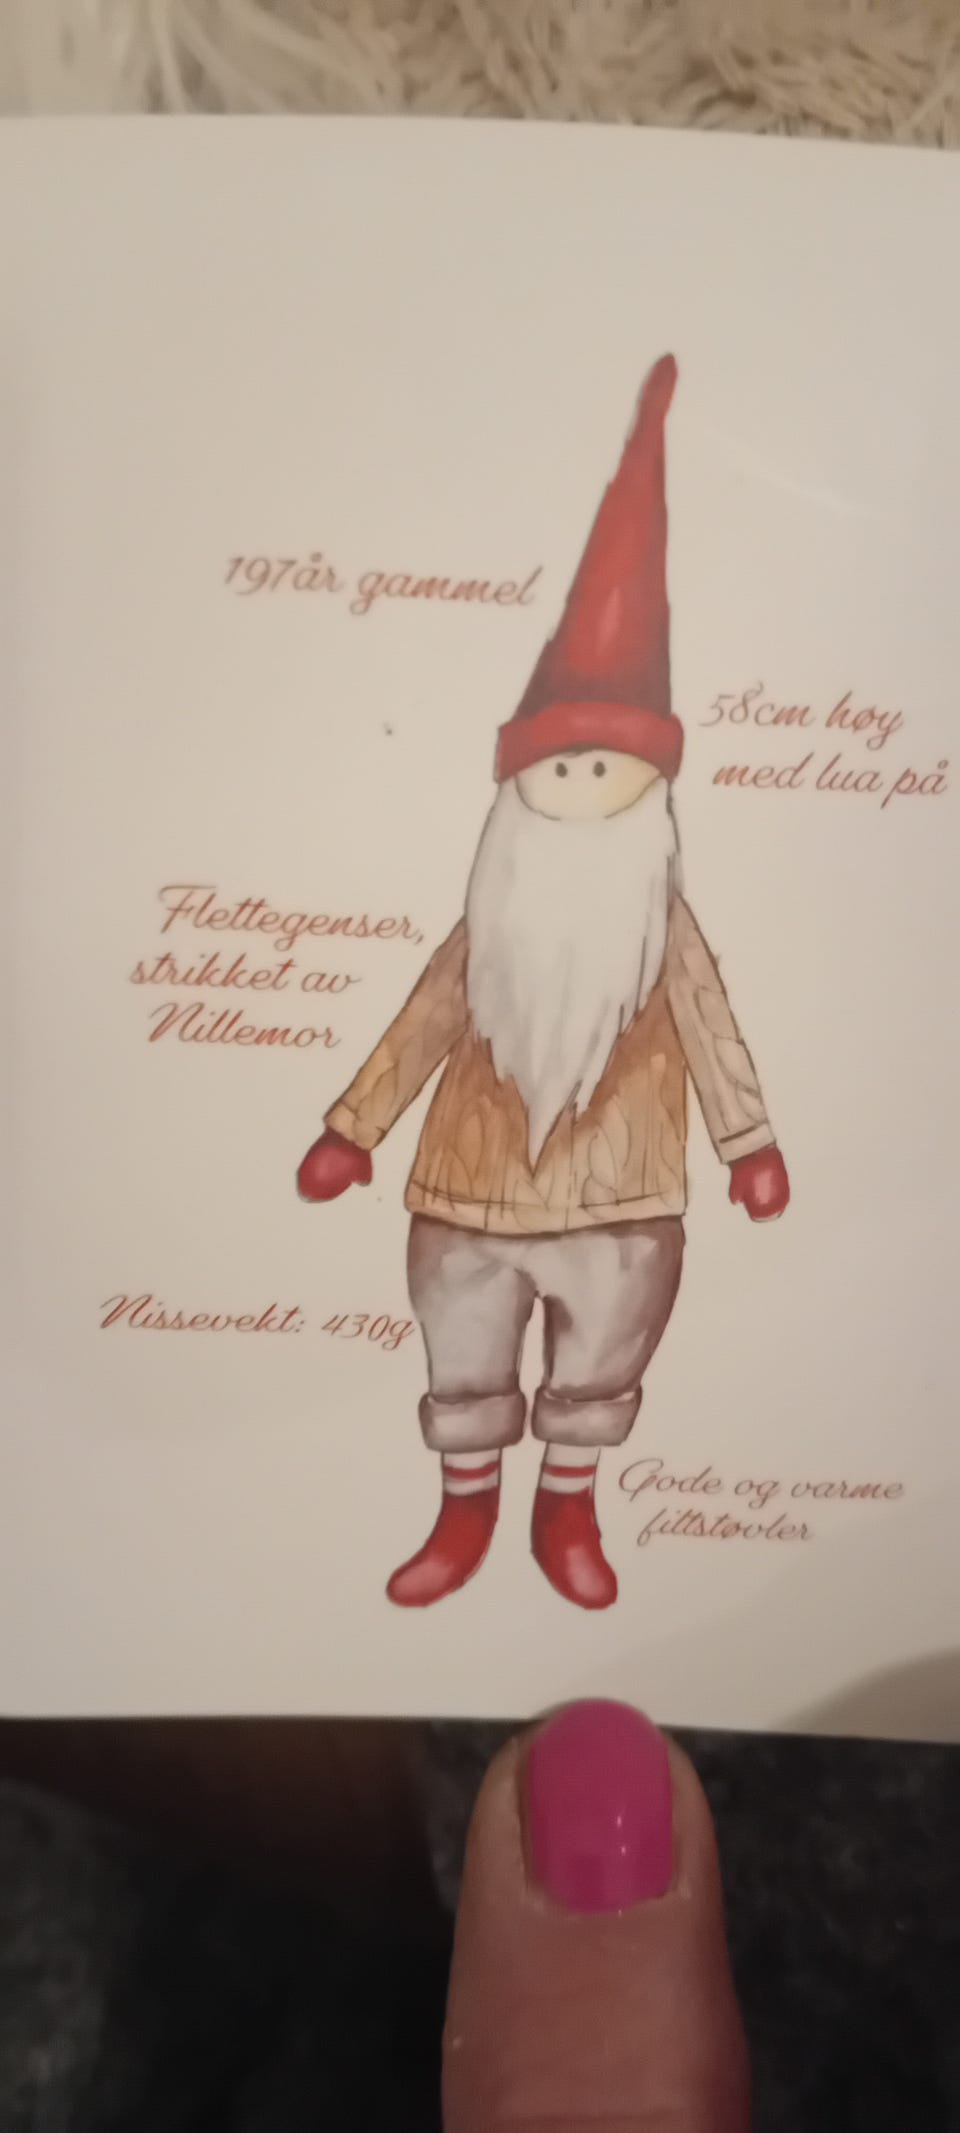 197år gammel
58cm høy
med lua på
Flettegenser,
strikket av
Nillemor
Nissevekt: 430g
Gode og varme
filttstøvler